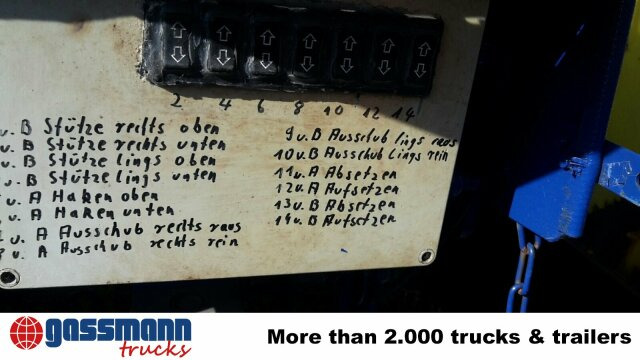 2 4 6 8 10 12 14
u. B Stütze rechts oben
u. B Stütze rechts unten
u. B Stütze lings oben
u. B Stütze lings unten
u. A Haken oben
u. A Haken unten
u. A Ausschub rechts raus
u. A Ausschub rechts rein
9 u. B Ausschub lings raus
10 u. B Ausschub lings rein
11 u. A Absetzen
12 u. A Aufsetzen
13 u. B Absetzen
14 u. B Aufsetzen
gassmann
trucks
More than 2.000 trucks & trailers